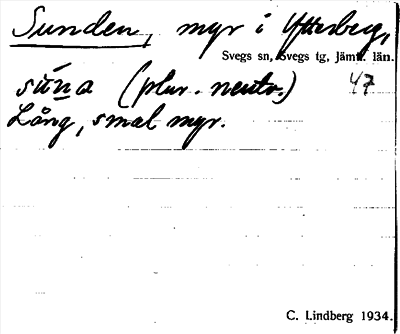 Sunden, myr i Ytterberg,
Svegs sn, Svegs tg, Jämtl. län.
súna (plur. neutr.) 47
Lång, smal myr.
C. Lindberg 1934.